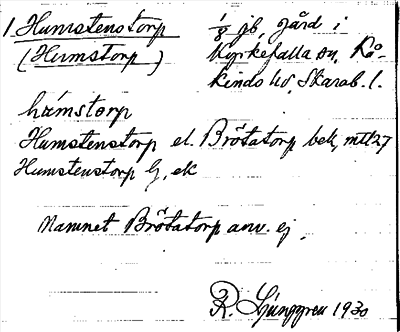 1 Humstenstorp 1/8 gb, gård i
(Humstorp) Kyrkefalla sn, Kå-
kinds hd, Skarab. l.
hùmstorp
Humstenstorp el. Brötatorp bek, mtl 27
Humstenstorp G, ek
Namnet Brötatorp anv. ej.
R. Ljunggren 1930